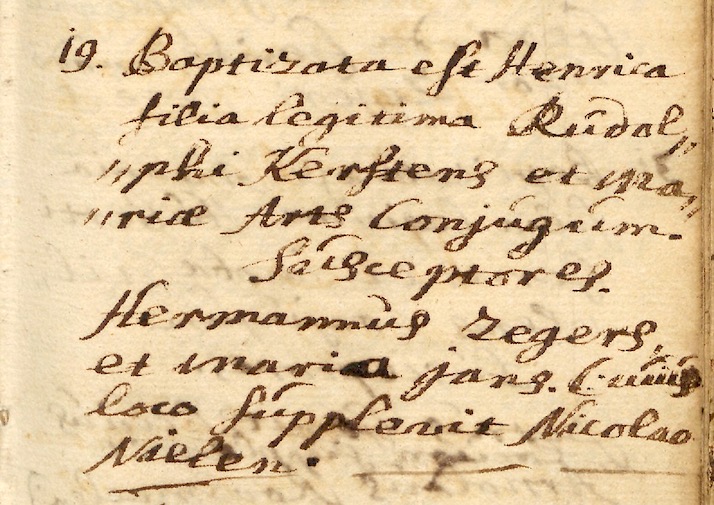 19. Baptizata est Henrica
filia legitima Rudol„
„phi Kerstens et Ma„
„riæ Arts Conjugum.
Susceptores.
Hermannus Zegers,
et Maria Jans. Cuius
loco supplevit Nicolao
Nielen.